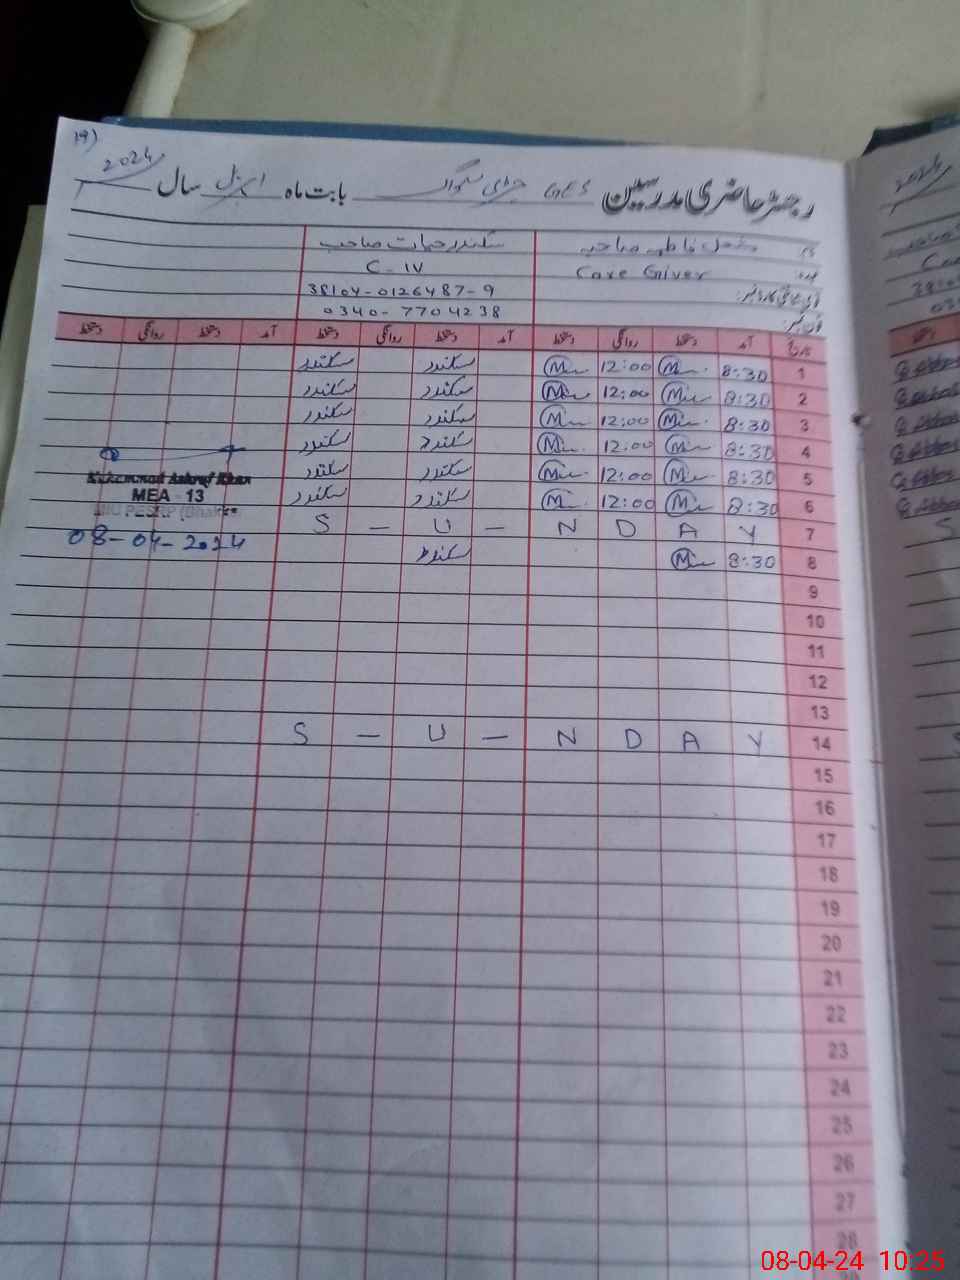 19)
رجسٹر حاضری مدرسین GES بابت ماہ اپریل سال 2024
نام سکندر حیات صاحب
عہدہ Care Giver C-IV
شناختی کارڈ نمبر: 38104-0126487-9
فون نمبر: 0340-7704238
تاریخ آمد دستخط روانگی دستخط آمد دستخط روانگی دستخط آمد دستخط روانگی دستخط
1 8:30 12:00 سکندر سکندر
2 8:30 12:00 سکندر سکندر
3 8:30 12:00 سکندر سکندر
4 8:30 12:00 سکندر سکندر
5 8:30 12:00 سکندر سکندر
6 8:30 12:00 سکندر سکندر
Muhammad Ashraf Khan
MEA - 13
PESRP (Bhakkar
08-04-2024
S - U - N D A Y 7
8 8:30 سکندر
9
10
11
12
13
S - U - N D A Y 14
15
16
17
18
19
20
21
22
23
24
25
26
27
28
08-04-24 10:25